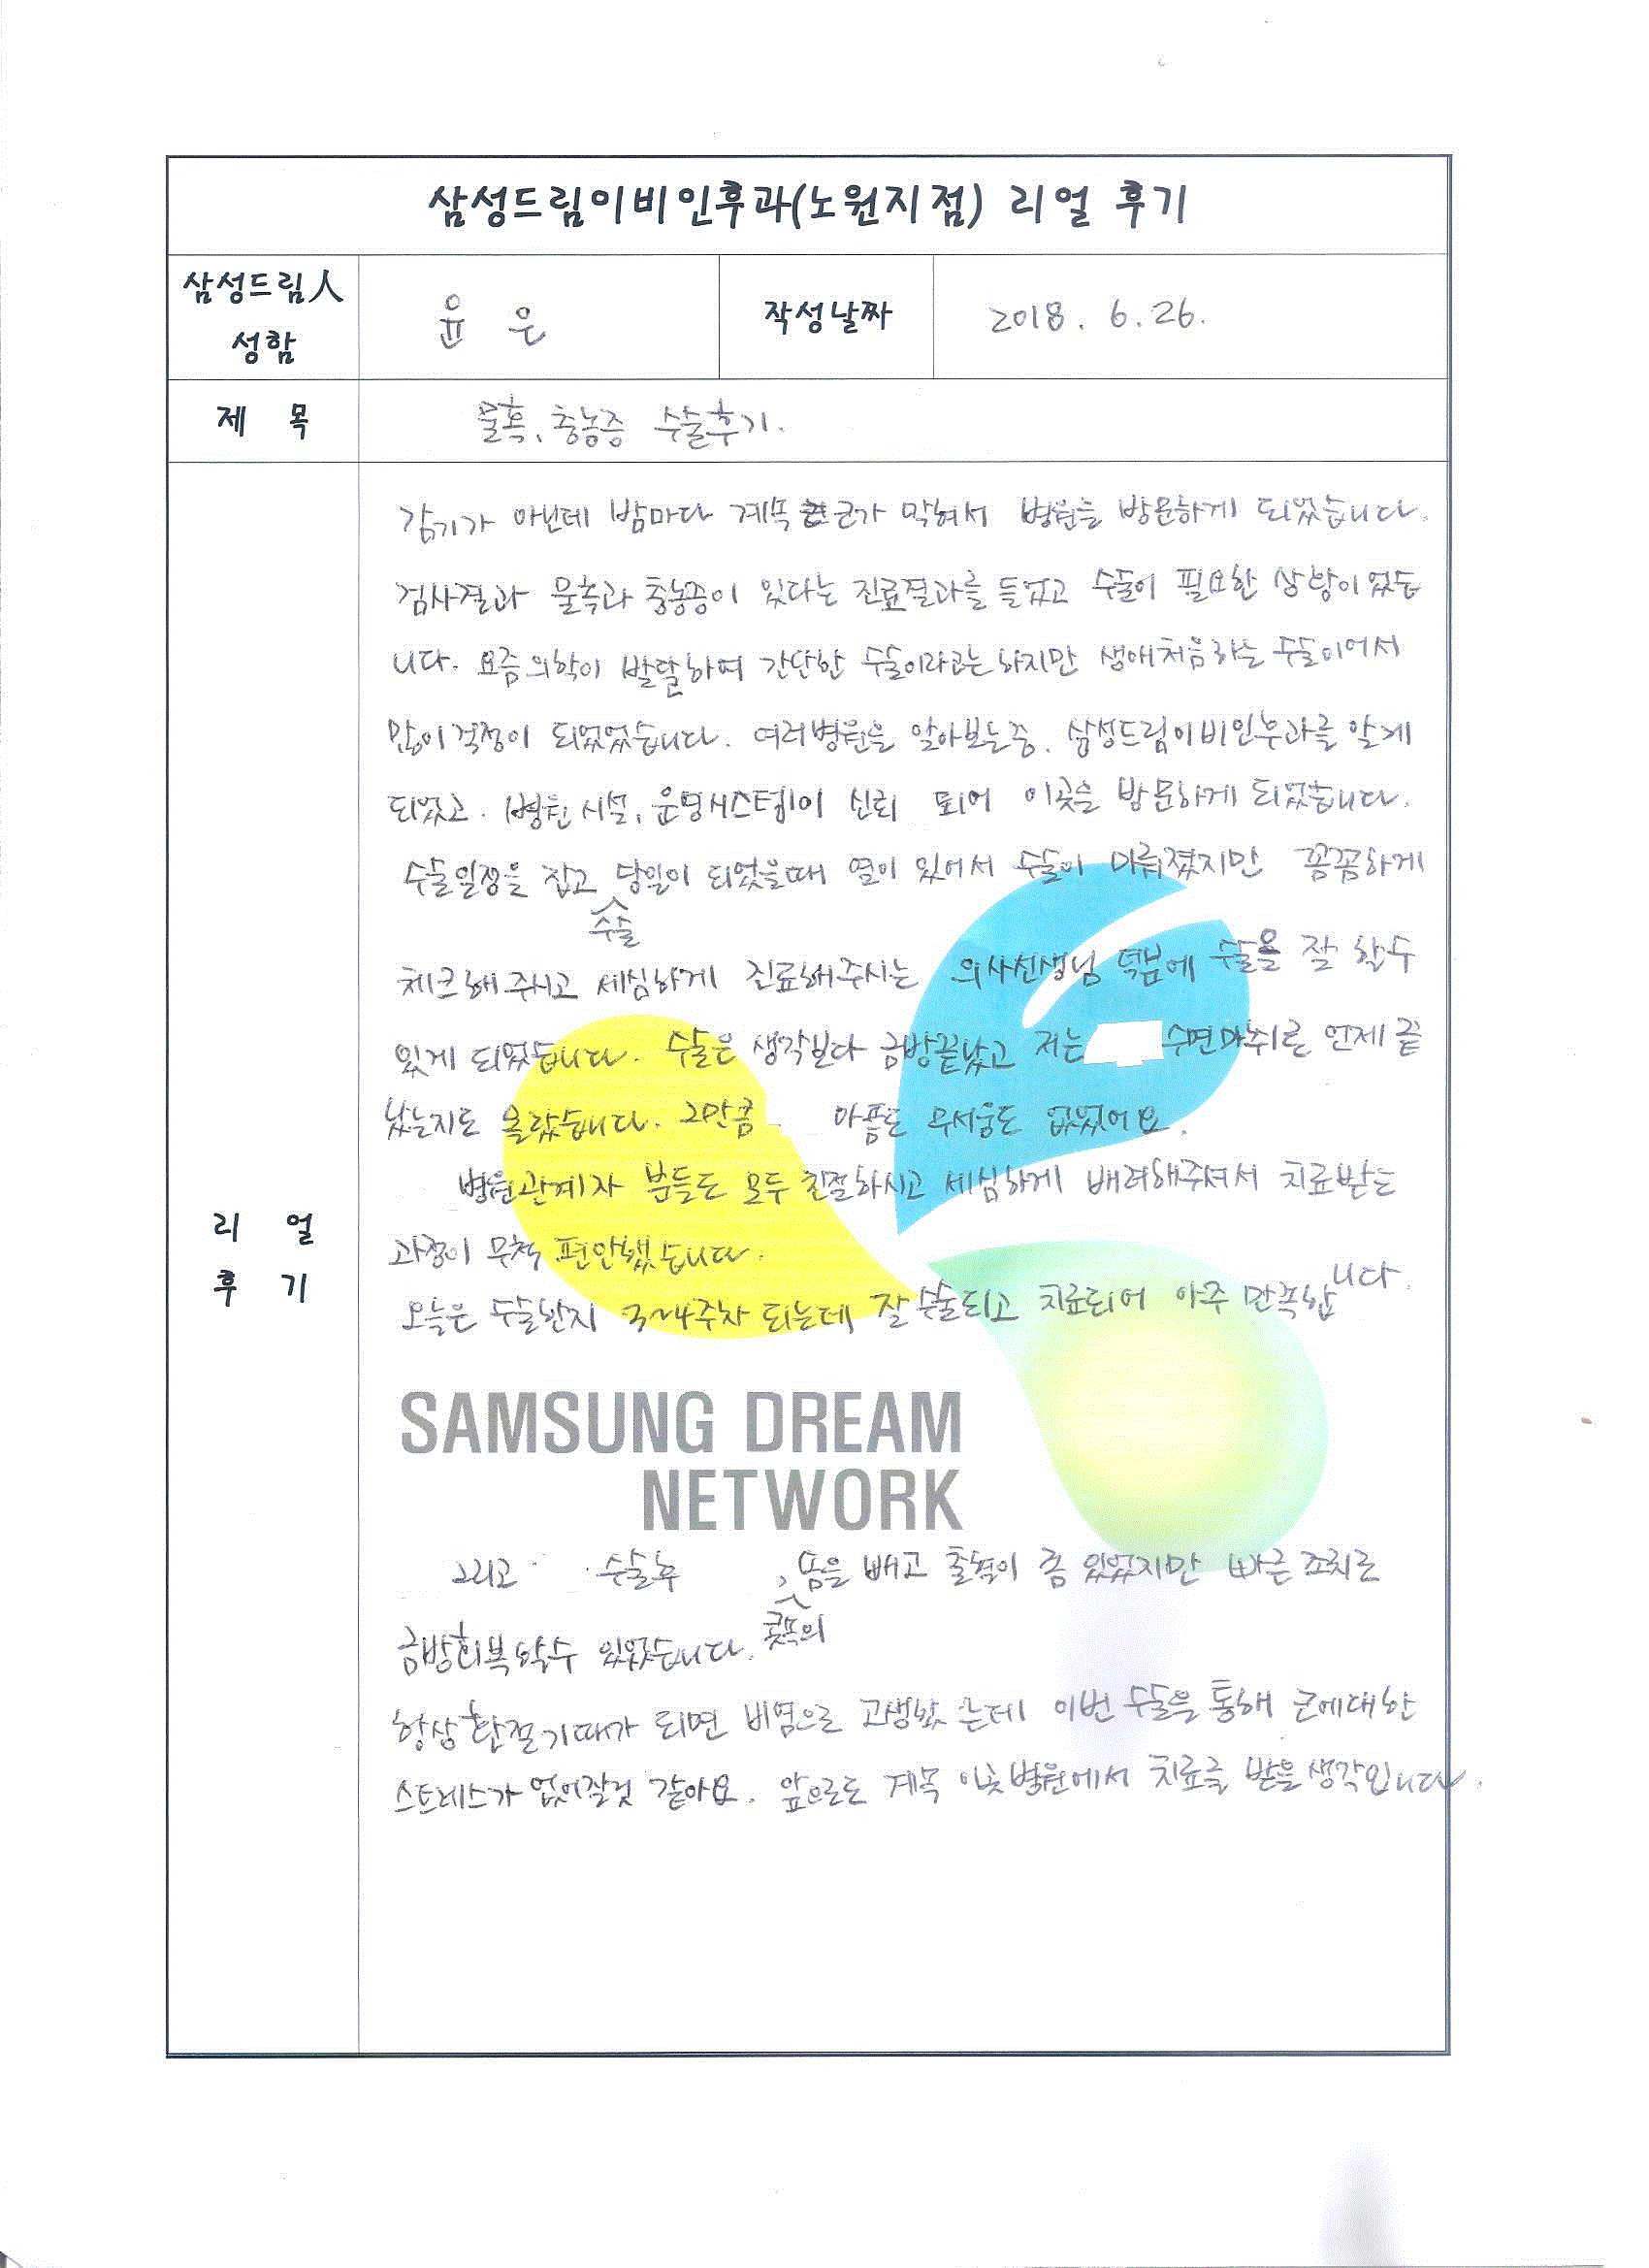 삼성드림이비인후과(노원지점) 리얼 후기
삼성드림人
성함
윤 은
작성날짜
2018. 6. 26.
제 목
물혹, 충농증 수술후기.
리 얼
후 기
감기가 아닌데 밤마다 계속 코가 막혀서 병원을 방문하게 되었습니다.
검사결과 물혹과 충농증이 있다는 진료결과를 들었고 수술이 필요한 상황이었습
니다. 요즘의학이 발달하여 간단한 수술이라고는 하지만 생애처음하는 수술이어서
많이걱정이 되었었습니다. 여러병원을 알아보는중, 삼성드림이비인후과를 알게
되었고. 병원시설, 운영시스템이 신뢰 되어 이곳을 방문하게 되었습니다.
수술일정을 잡고 당일이 되었을때 열이 있어서 수술이 미뤄졌지만 꼼꼼하게
수술
체크해주시고 세심하게 진료해주시는 의사선생님 덕분에 수술을 잘 할수
있게 되었습니다. 수술은 생각보다 금방끝났고 저는 수면마취로 언제 끝
났는지도 몰랐습니다. 그만큼 아픔도 무서움도 없었어요.
병원관계자 분들도 모두 친절하시고 세심하게 배려해주셔서 치료받는
과정이 무척 편안했습니다.
오늘은 수술한지 3~4주차 되는데 잘 수술되고 치료되어 아주 만족합니다.
SAMSUNG DREAM
NETWORK
그리고 수술후 솜을 빼고 출혈이 좀 있었지만 빠른 조치로
콧속의
금방회복할수 있었습니다.
항상환절기때가 되면 비염으로 고생했는데 이번 수술을 통해 코에대한
스트레스가 없어질것 같아요. 앞으로도 계속 이곳병원에서 치료를 받을생각입니다.